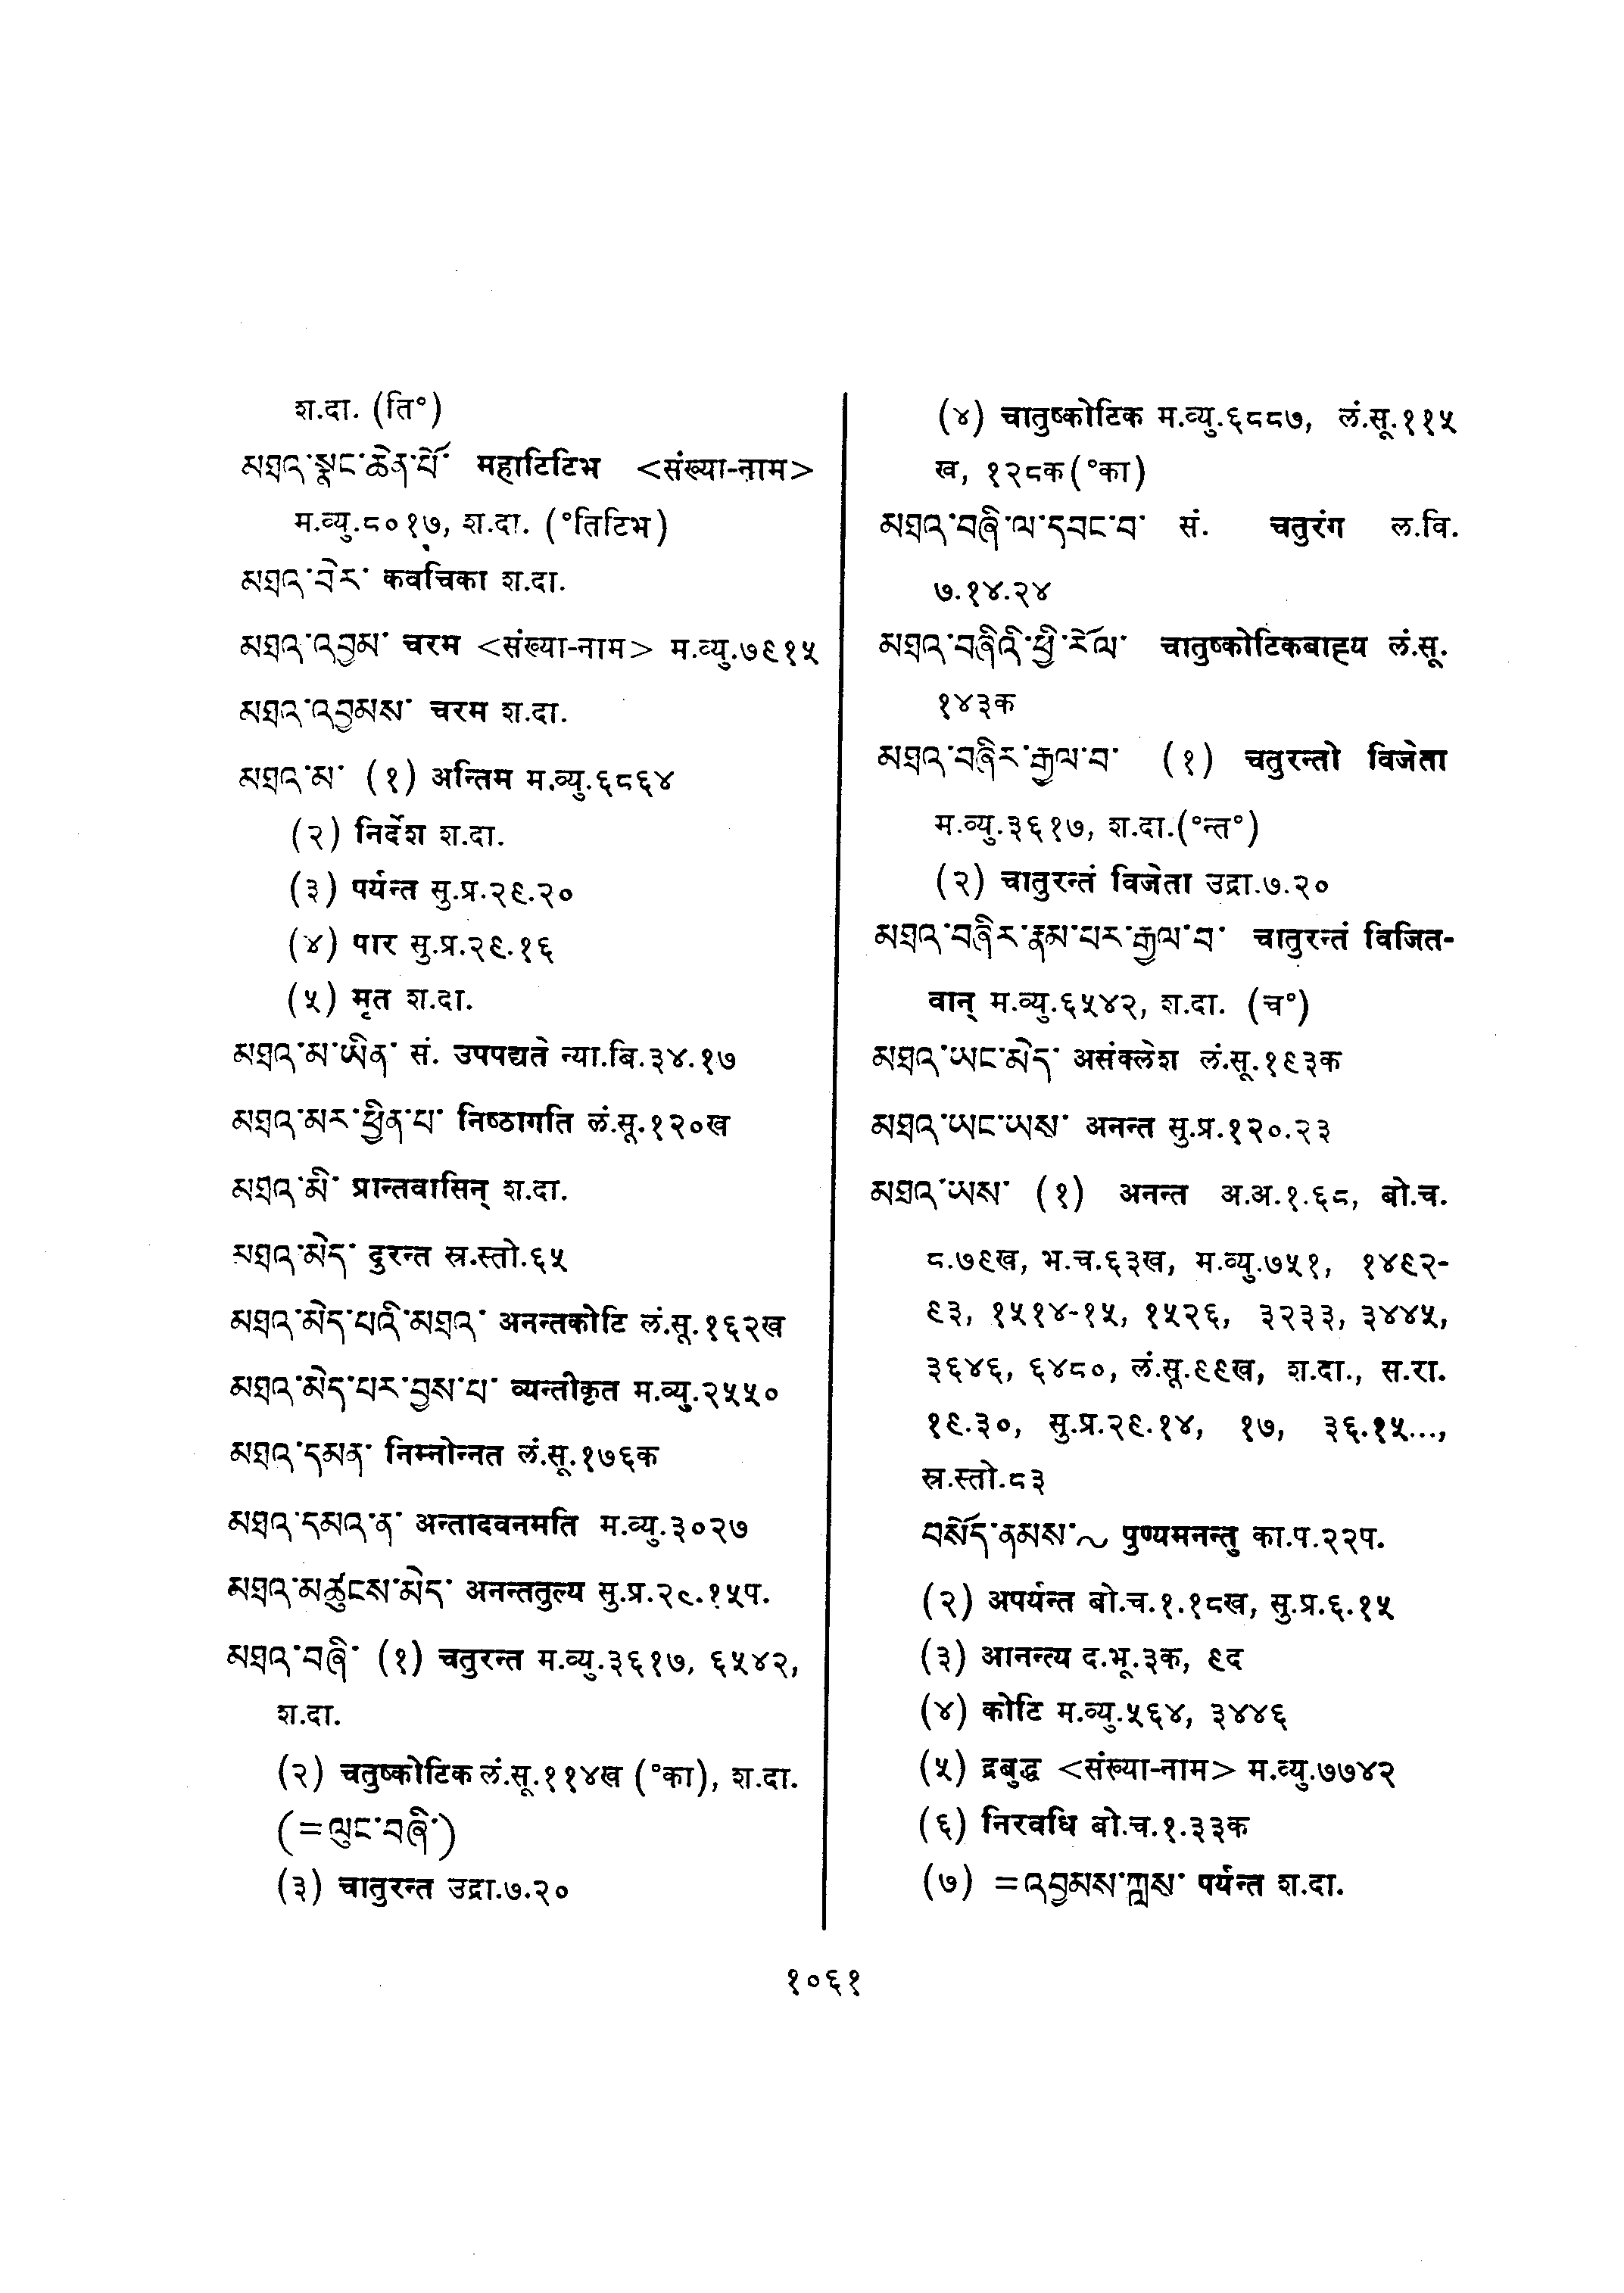 श.दा. (ति°)
མཐའ་སྣང་ཆེན་པོ་ महाटिटिभ <संख्या-नाम>
म.व्यु.८०१७, श.दा. (°तिटिभ)
མཐའ་བེར་ कवचिका श.दा.
མཐའ་འབྱམ་ चरम <संख्या-नाम> म.व्यु.७९१५
མཐའ་འབྱམས་ चरम श.दा.
མཐའ་མ་ (१) अन्तिम म.व्यु.६८६४
(२) निर्देश श.दा.
(३) पर्यन्त सु.प्र.२९.२०
(४) पार सु.प्र.२९.१६
(५) मृत श.दा.
མཐའ་མ་ཡིན་ सं. उपपद्यते न्या.बि.३४.१७
མཐའ་མར་ཕྱིན་པ་ निष्ठागति लं.सू.१२०ख
མཐའ་མི་ प्रान्तवासिन् श.दा.
མཐའ་མེད་ दुरन्त स्र.स्तो.६५
མཐའ་མེད་པའི་མཐའ་ अनन्तकोटि लं.सू.१६२ख
མཐའ་མེད་པར་བྱས་པ་ व्यन्तीकृत म.व्यु.२५५०
མཐའ་དམན་ निम्नोन्नत लं.सू.१७६क
མཐའ་དམའ་ན་ अन्तादवनमति म.व्यु.३०२७
མཐའ་མཚུངས་མེད་ अनन्ततुल्य सु.प्र.२९.१५प.
མཐའ་བཞི་ (१) चतुरन्त म.व्यु.३६१७, ६५४२,
श.दा.
(२) चतुष्कोटिक लं.सू.११४ख (°का), श.दा.
(=ལུང་བཞི་)
(३) चातुरन्त उद्रा.७.२०
(४) चातुष्कोटिक म.व्यु.६८८७, लं.सू.११५
ख, १२८क(°का)
མཐའ་བཞི་ལ་དབང་བ་ सं. चतुरंग ल.वि.
७.१४.२४
མཐའ་བཞིའི་ཕྱི་རོལ་ चातुष्कोटिकबाह्य लं.सू.
१४३क
མཐའ་བཞིར་རྒྱལ་བ་ (१) चतुरन्तो विजेता
म.व्यु.३६१७, श.दा.(°न्त°)
(२) चातुरन्तं विजेता उद्रा.७.२०
མཐའ་བཞིར་རྣམ་པར་རྒྱལ་བ་ चातुरन्तं विजित-
वान् म.व्यु.६५४२, श.दा. (च°)
མཐའ་ཡང་མེད་ असंक्लेश लं.सू.१९३क
མཐའ་ཡང་ཡས་ अनन्त सु.प्र.१२०.२३
མཐའ་ཡས་ (१) अनन्त अ.अ.१.६८, बो.च.
८.७९ख, भ.च.६३ख, म.व्यु.७५१, १४९२-
९३, १५१४-१५, १५२६, ३२३३, ३४४५,
३६४६, ६४८०, लं.सू.९९ख, श.दा., स.रा.
१९.३०, सु.प्र.२९.१४, १७, ३६.१५...,
स्र.स्तो.८३
བསོད་ནམས་~ पुण्यमनन्तु का.प.२२प.
(२) अपर्यन्त बो.च.१.१८ख, सु.प्र.६.१५
(३) आनन्त्य द.भू.३क, ९द
(४) कोटि म.व्यु.५६४, ३४४६
(५) द्रबुद्ध <संख्या-नाम> म.व्यु.७७४२
(६) निरवधि बो.च.१.३३क
(७) =འབྱམས་ཀླས་ पर्यन्त श.दा.
१०६१